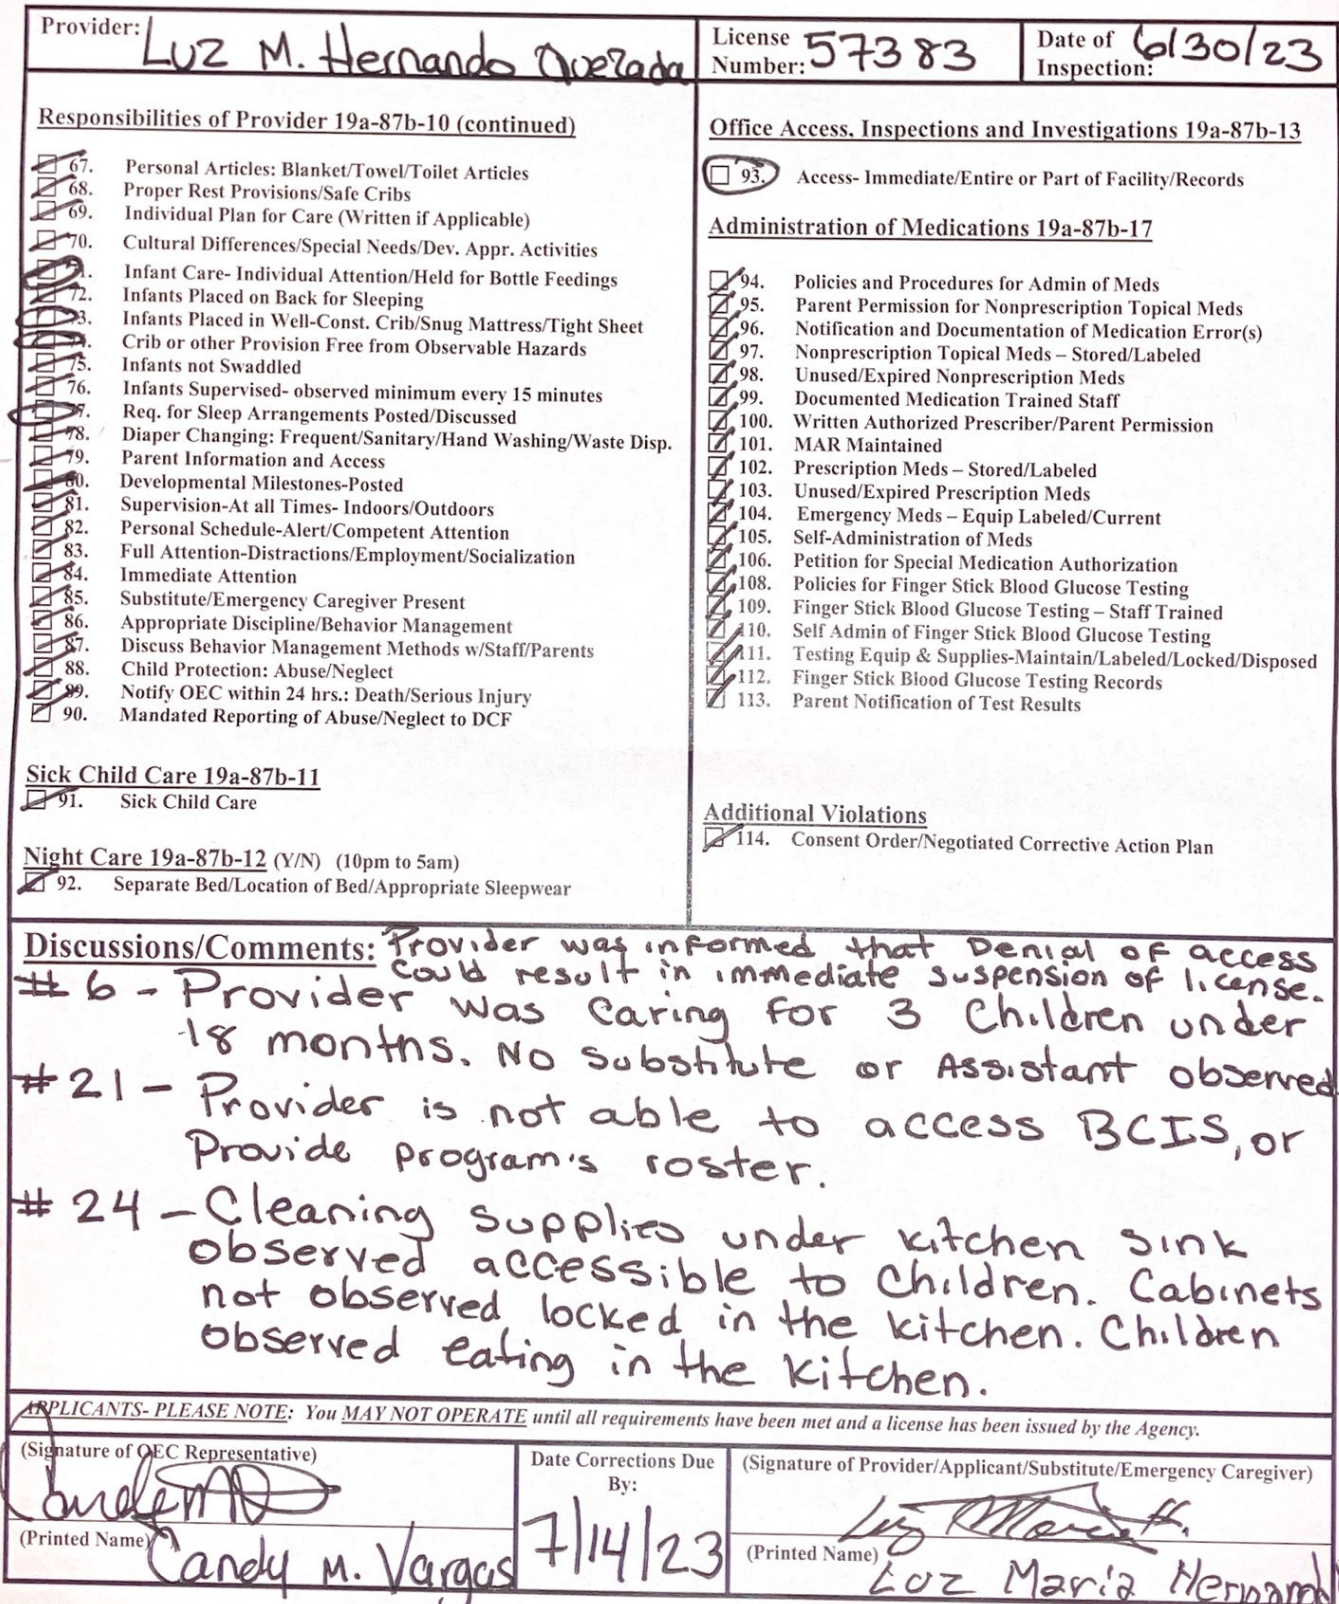 Provider: Luz M. Hernando Quezada
License Number: 57383
Date of Inspection: 6/30/23
Responsibilities of Provider 19a-87b-10 (continued)
67. Personal Articles: Blanket/Towel/Toilet Articles
68. Proper Rest Provisions/Safe Cribs
69. Individual Plan for Care (Written if Applicable)
70. Cultural Differences/Special Needs/Dev. Appr. Activities
71. Infant Care- Individual Attention/Held for Bottle Feedings
72. Infants Placed on Back for Sleeping
73. Infants Placed in Well-Const. Crib/Snug Mattress/Tight Sheet
74. Crib or other Provision Free from Observable Hazards
75. Infants not Swaddled
76. Infants Supervised- observed minimum every 15 minutes
77. Req. for Sleep Arrangements Posted/Discussed
78. Diaper Changing: Frequent/Sanitary/Hand Washing/Waste Disp.
79. Parent Information and Access
80. Developmental Milestones-Posted
81. Supervision-At all Times- Indoors/Outdoors
82. Personal Schedule-Alert/Competent Attention
83. Full Attention-Distractions/Employment/Socialization
84. Immediate Attention
85. Substitute/Emergency Caregiver Present
86. Appropriate Discipline/Behavior Management
87. Discuss Behavior Management Methods w/Staff/Parents
88. Child Protection: Abuse/Neglect
89. Notify OEC within 24 hrs.: Death/Serious Injury
90. Mandated Reporting of Abuse/Neglect to DCF
Sick Child Care 19a-87b-11
91. Sick Child Care
Night Care 19a-87b-12 (Y/N) (10pm to 5am)
92. Separate Bed/Location of Bed/Appropriate Sleepwear
Office Access, Inspections and Investigations 19a-87b-13
93. Access- Immediate/Entire or Part of Facility/Records
Administration of Medications 19a-87b-17
94. Policies and Procedures for Admin of Meds
95. Parent Permission for Nonprescription Topical Meds
96. Notification and Documentation of Medication Error(s)
97. Nonprescription Topical Meds – Stored/Labeled
98. Unused/Expired Nonprescription Meds
99. Documented Medication Trained Staff
100. Written Authorized Prescriber/Parent Permission
101. MAR Maintained
102. Prescription Meds – Stored/Labeled
103. Unused/Expired Prescription Meds
104. Emergency Meds – Equip Labeled/Current
105. Self-Administration of Meds
106. Petition for Special Medication Authorization
108. Policies for Finger Stick Blood Glucose Testing
109. Finger Stick Blood Glucose Testing – Staff Trained
110. Self Admin of Finger Stick Blood Glucose Testing
111. Testing Equip & Supplies-Maintain/Labeled/Locked/Disposed
112. Finger Stick Blood Glucose Testing Records
113. Parent Notification of Test Results
Additional Violations
114. Consent Order/Negotiated Corrective Action Plan
Discussions/Comments: Provider was informed that Denial of access
could result in immediate suspension of license.
#6 - Provider was Caring for 3 Children under
18 months. No Substitute or Assistant observed
#21 - Provider is not able to access BCIS, or
Provide program's roster.
#24 - Cleaning supplies under kitchen sink
observed accessible to Children. Cabinets
not observed locked in the kitchen. Children
observed eating in the kitchen.
APPLICANTS- PLEASE NOTE: You MAY NOT OPERATE until all requirements have been met and a license has been issued by the Agency.
(Signature of OEC Representative)
(Printed Name) Candy M. Vargas
Date Corrections Due By:
7/14/23
(Signature of Provider/Applicant/Substitute/Emergency Caregiver)
(Printed Name) Luz Maria Hernand